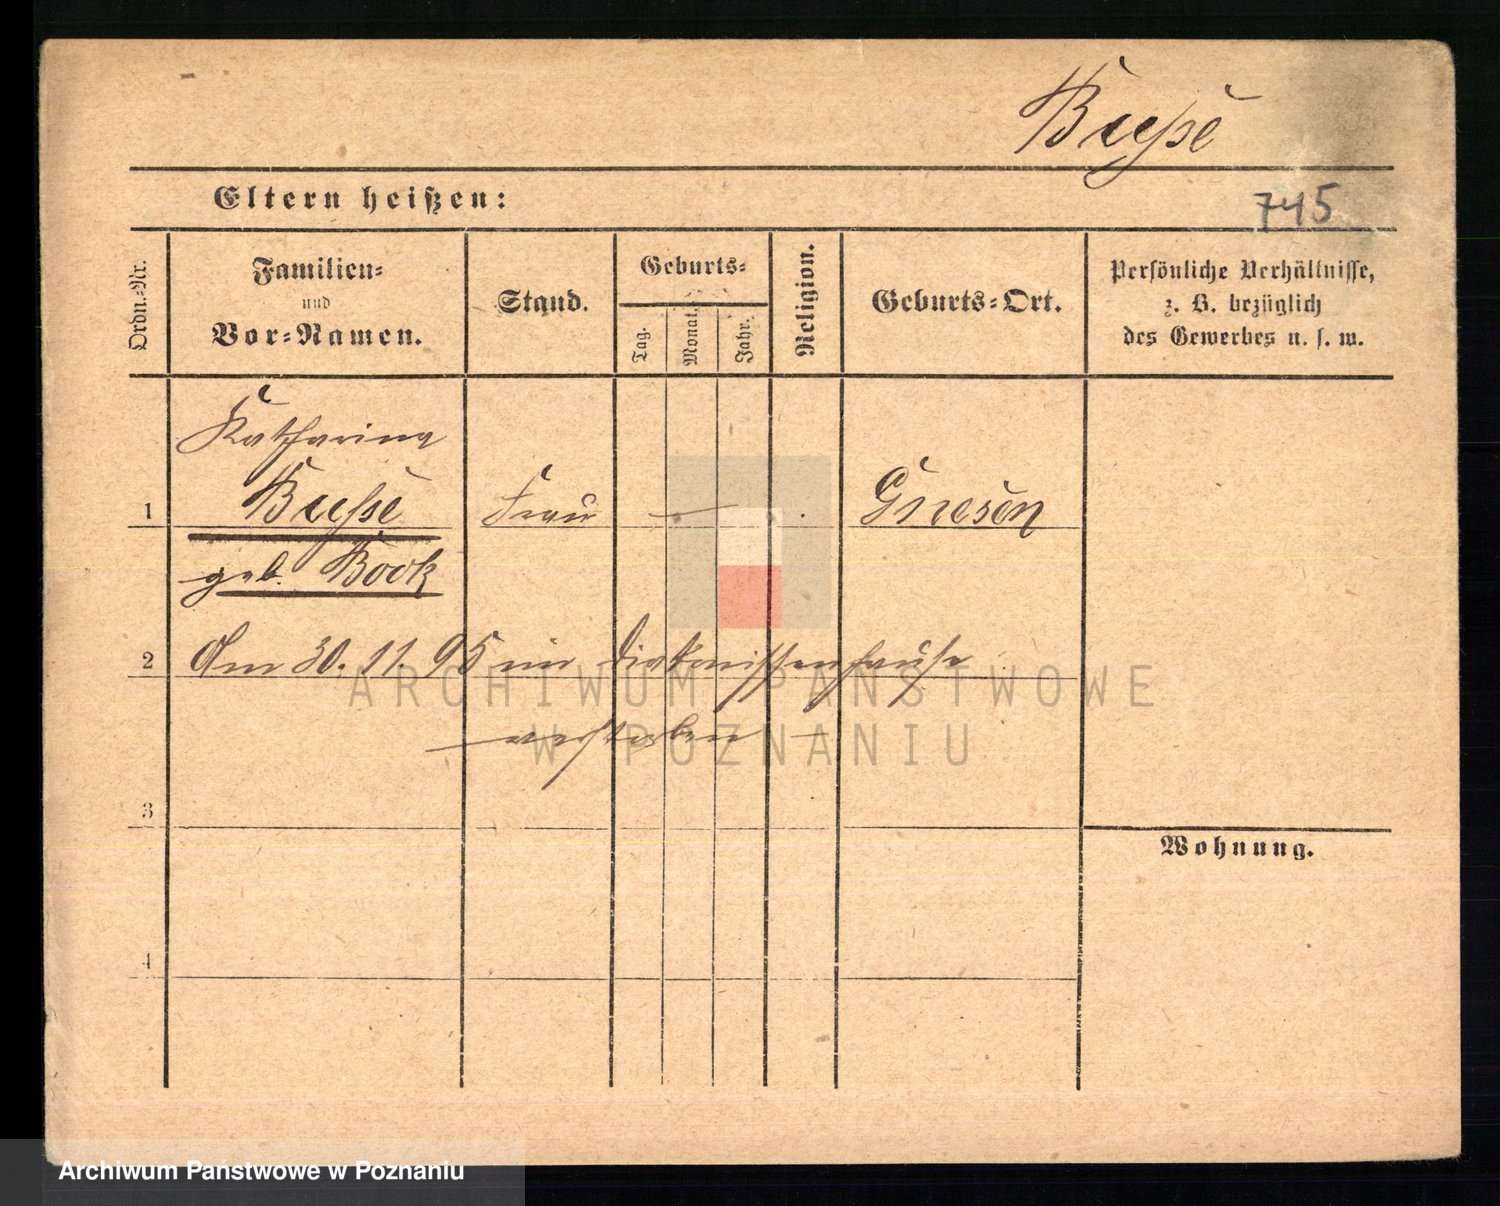 Busse
Eltern heißen:
745
Ordn.-Nr.
Familien-
und
Vor-Namen.
Stand.
Geburts-
Tag.
Monat.
Jahr.
Religion.
Geburts-Ort.
Persönliche Verhältnisse,
z. B. bezüglich
des Gewerbes u. s. w.
Katharina
1 Busse Frau — . Gnesen
geb. Book
2 Am 30. 11. 95 im Diakonissenhause
— verstorben —
3
Wohnung.
4
ARCHIWUM PAŃSTWOWE
W POZNANIU
Archiwum Państwowe w Poznaniu